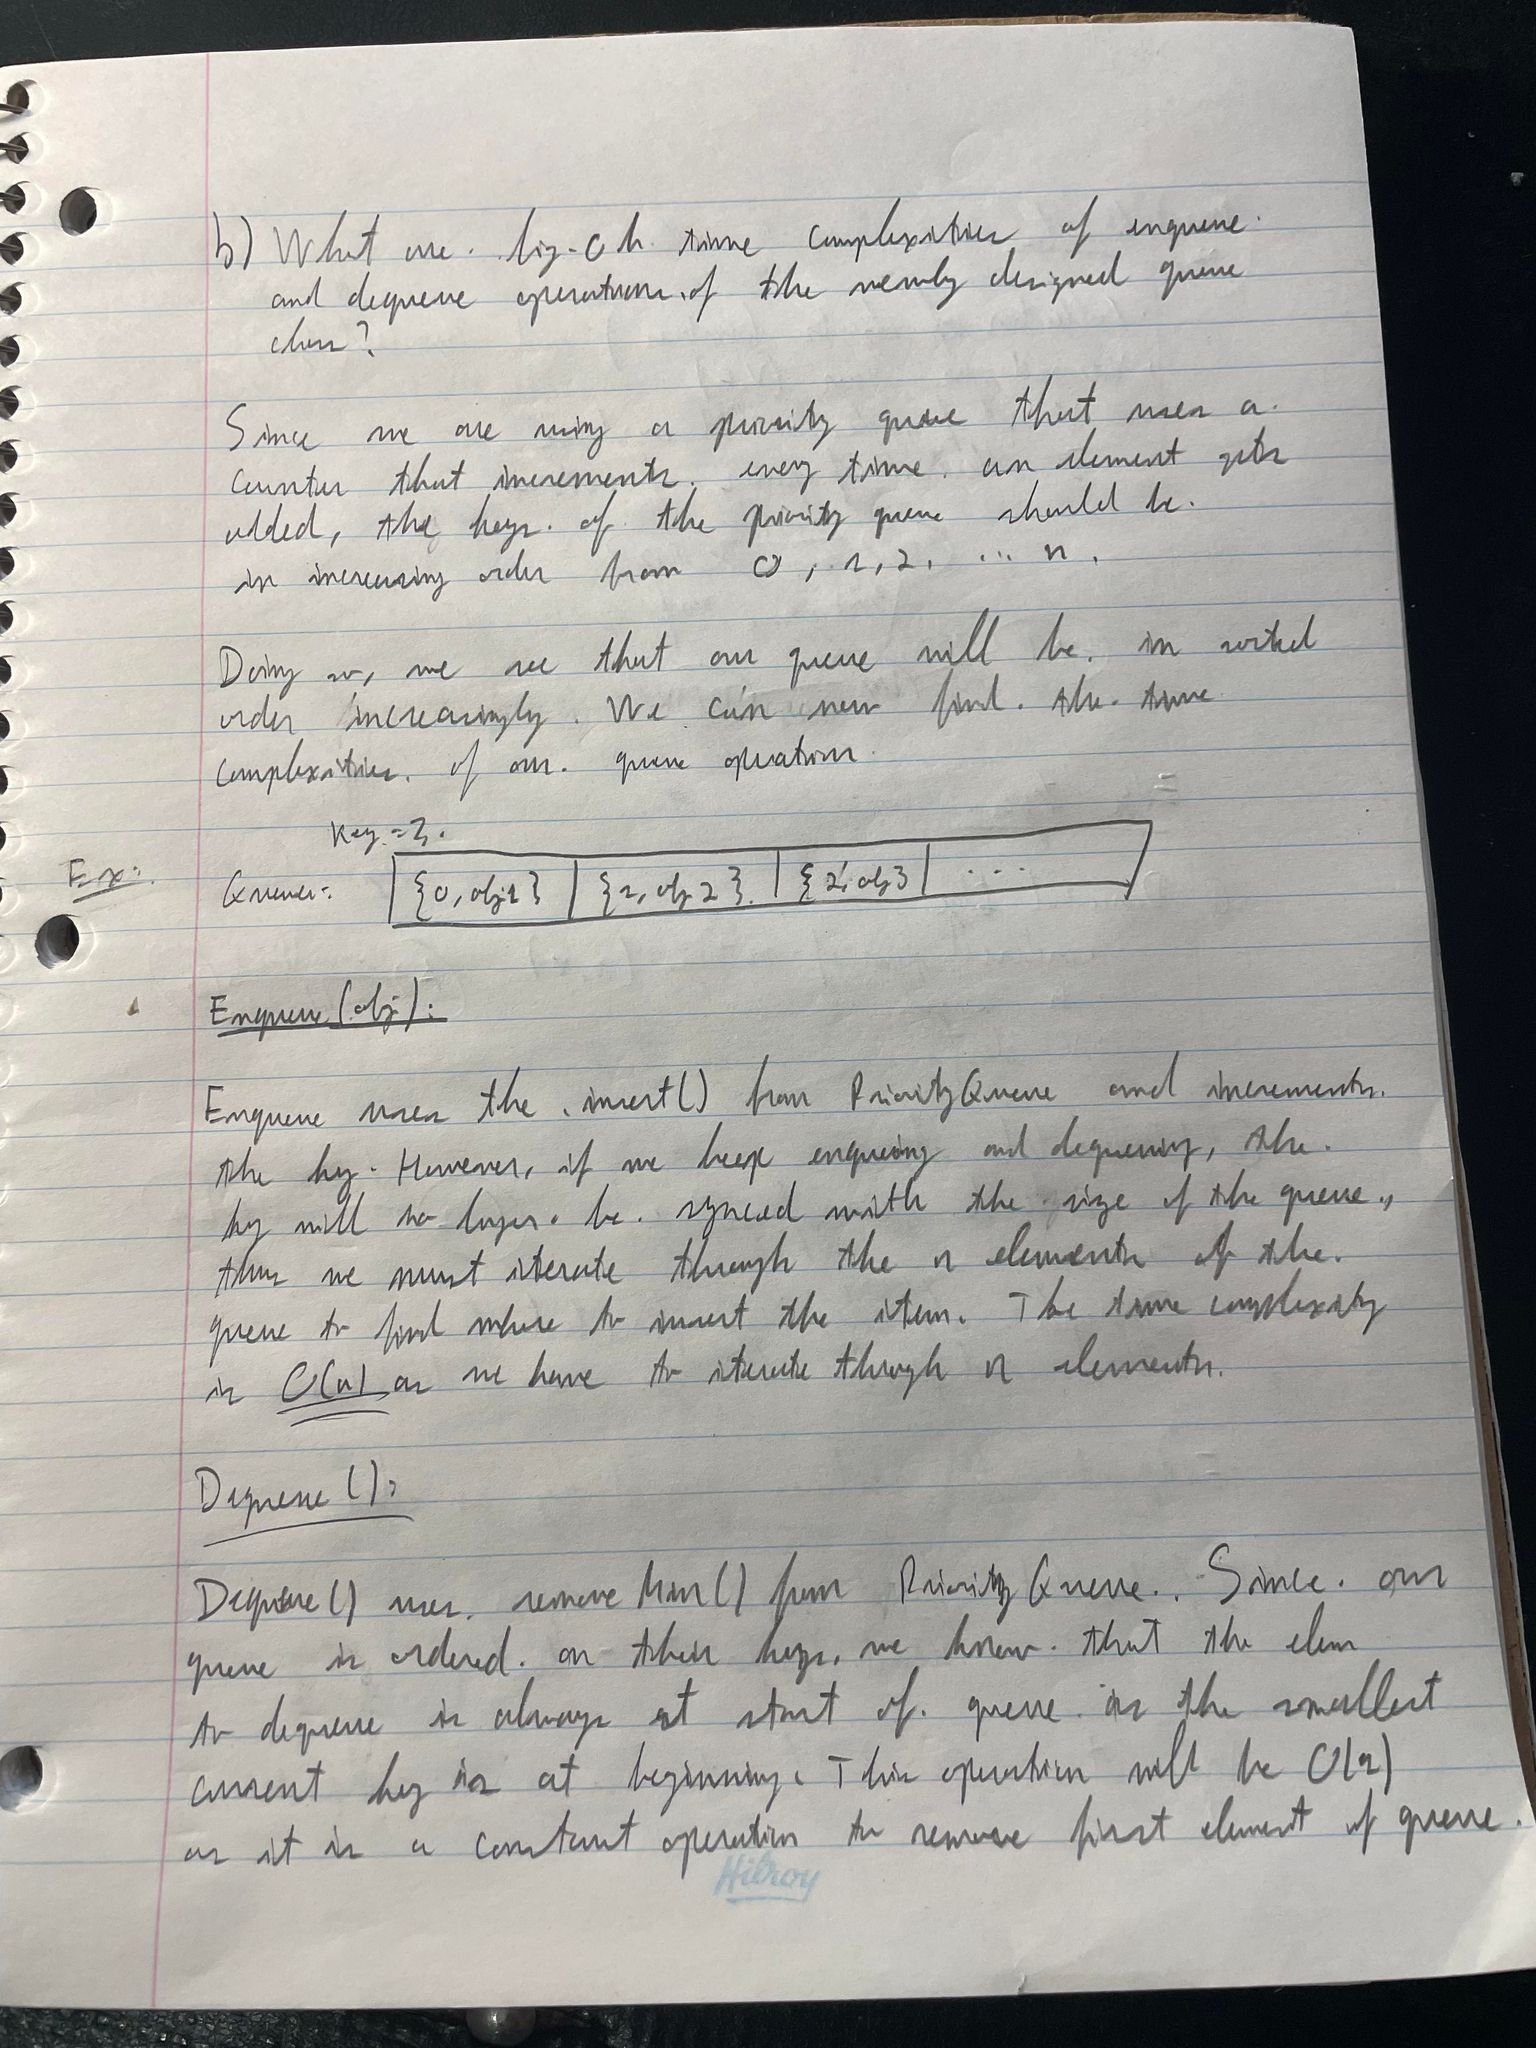 b) What are big-Oh time complexities of enqueue
and dequeue operations of the newly designed queue
class?
Since we are using a priority queue that uses a
counter that increments every time an element gets
added, the keys of the priority queue should be
in increasing order from 0, 1, 2, ... n.
Doing so, we see that our queue will be in sorted
order increasingly. We can now find the time
complexities of our queue operation.
Key = 3.
Ex:
Queue: {0, obj1} {1, obj2} {2, obj3 ...
Enqueue(obj):
Enqueue uses the insert() from PriorityQueue and increments
the key. However, if we keep enqueing and dequeuing, the
key will no longer be synced with the size of the queue,
thus we must iterate through the n elements of the
queue to find where to insert the item. The time complexity
is O(n) as we have to iterate through n elements.
Dequeue():
Dequeue() uses removeMin() from PriorityQueue. Since our
queue is ordered on their keys, we know that the elem
to dequeue is always at start of queue as the smallest
current key is at beginning. This operation will be O(1)
as it is a constant operation to remove first element of queue.
Hilroy